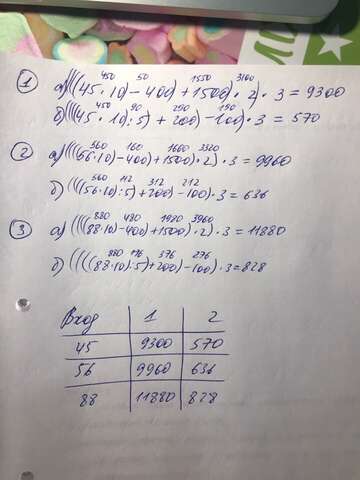 450 50 1550 3100
① а) (((45·10)-400)+1500)·2)·3=9300
450 90 290 190
б) (((45·10):5)+200)-100)·3=570
560 160 1660 3320
② а) (((56·10)-400)+1500)·2)·3=9960
560 112 312 212
б) (((56·10):5)+200)-100)·3=636
880 480 1980 3960
③ а) ((((88·10)-400)+1500)·2)·3=11880
880 176 376 276
б) ((((88·10):5)+200)-100)·3=828
Вход 1 2
45 9300 570
56 9960 636
88 11880 828